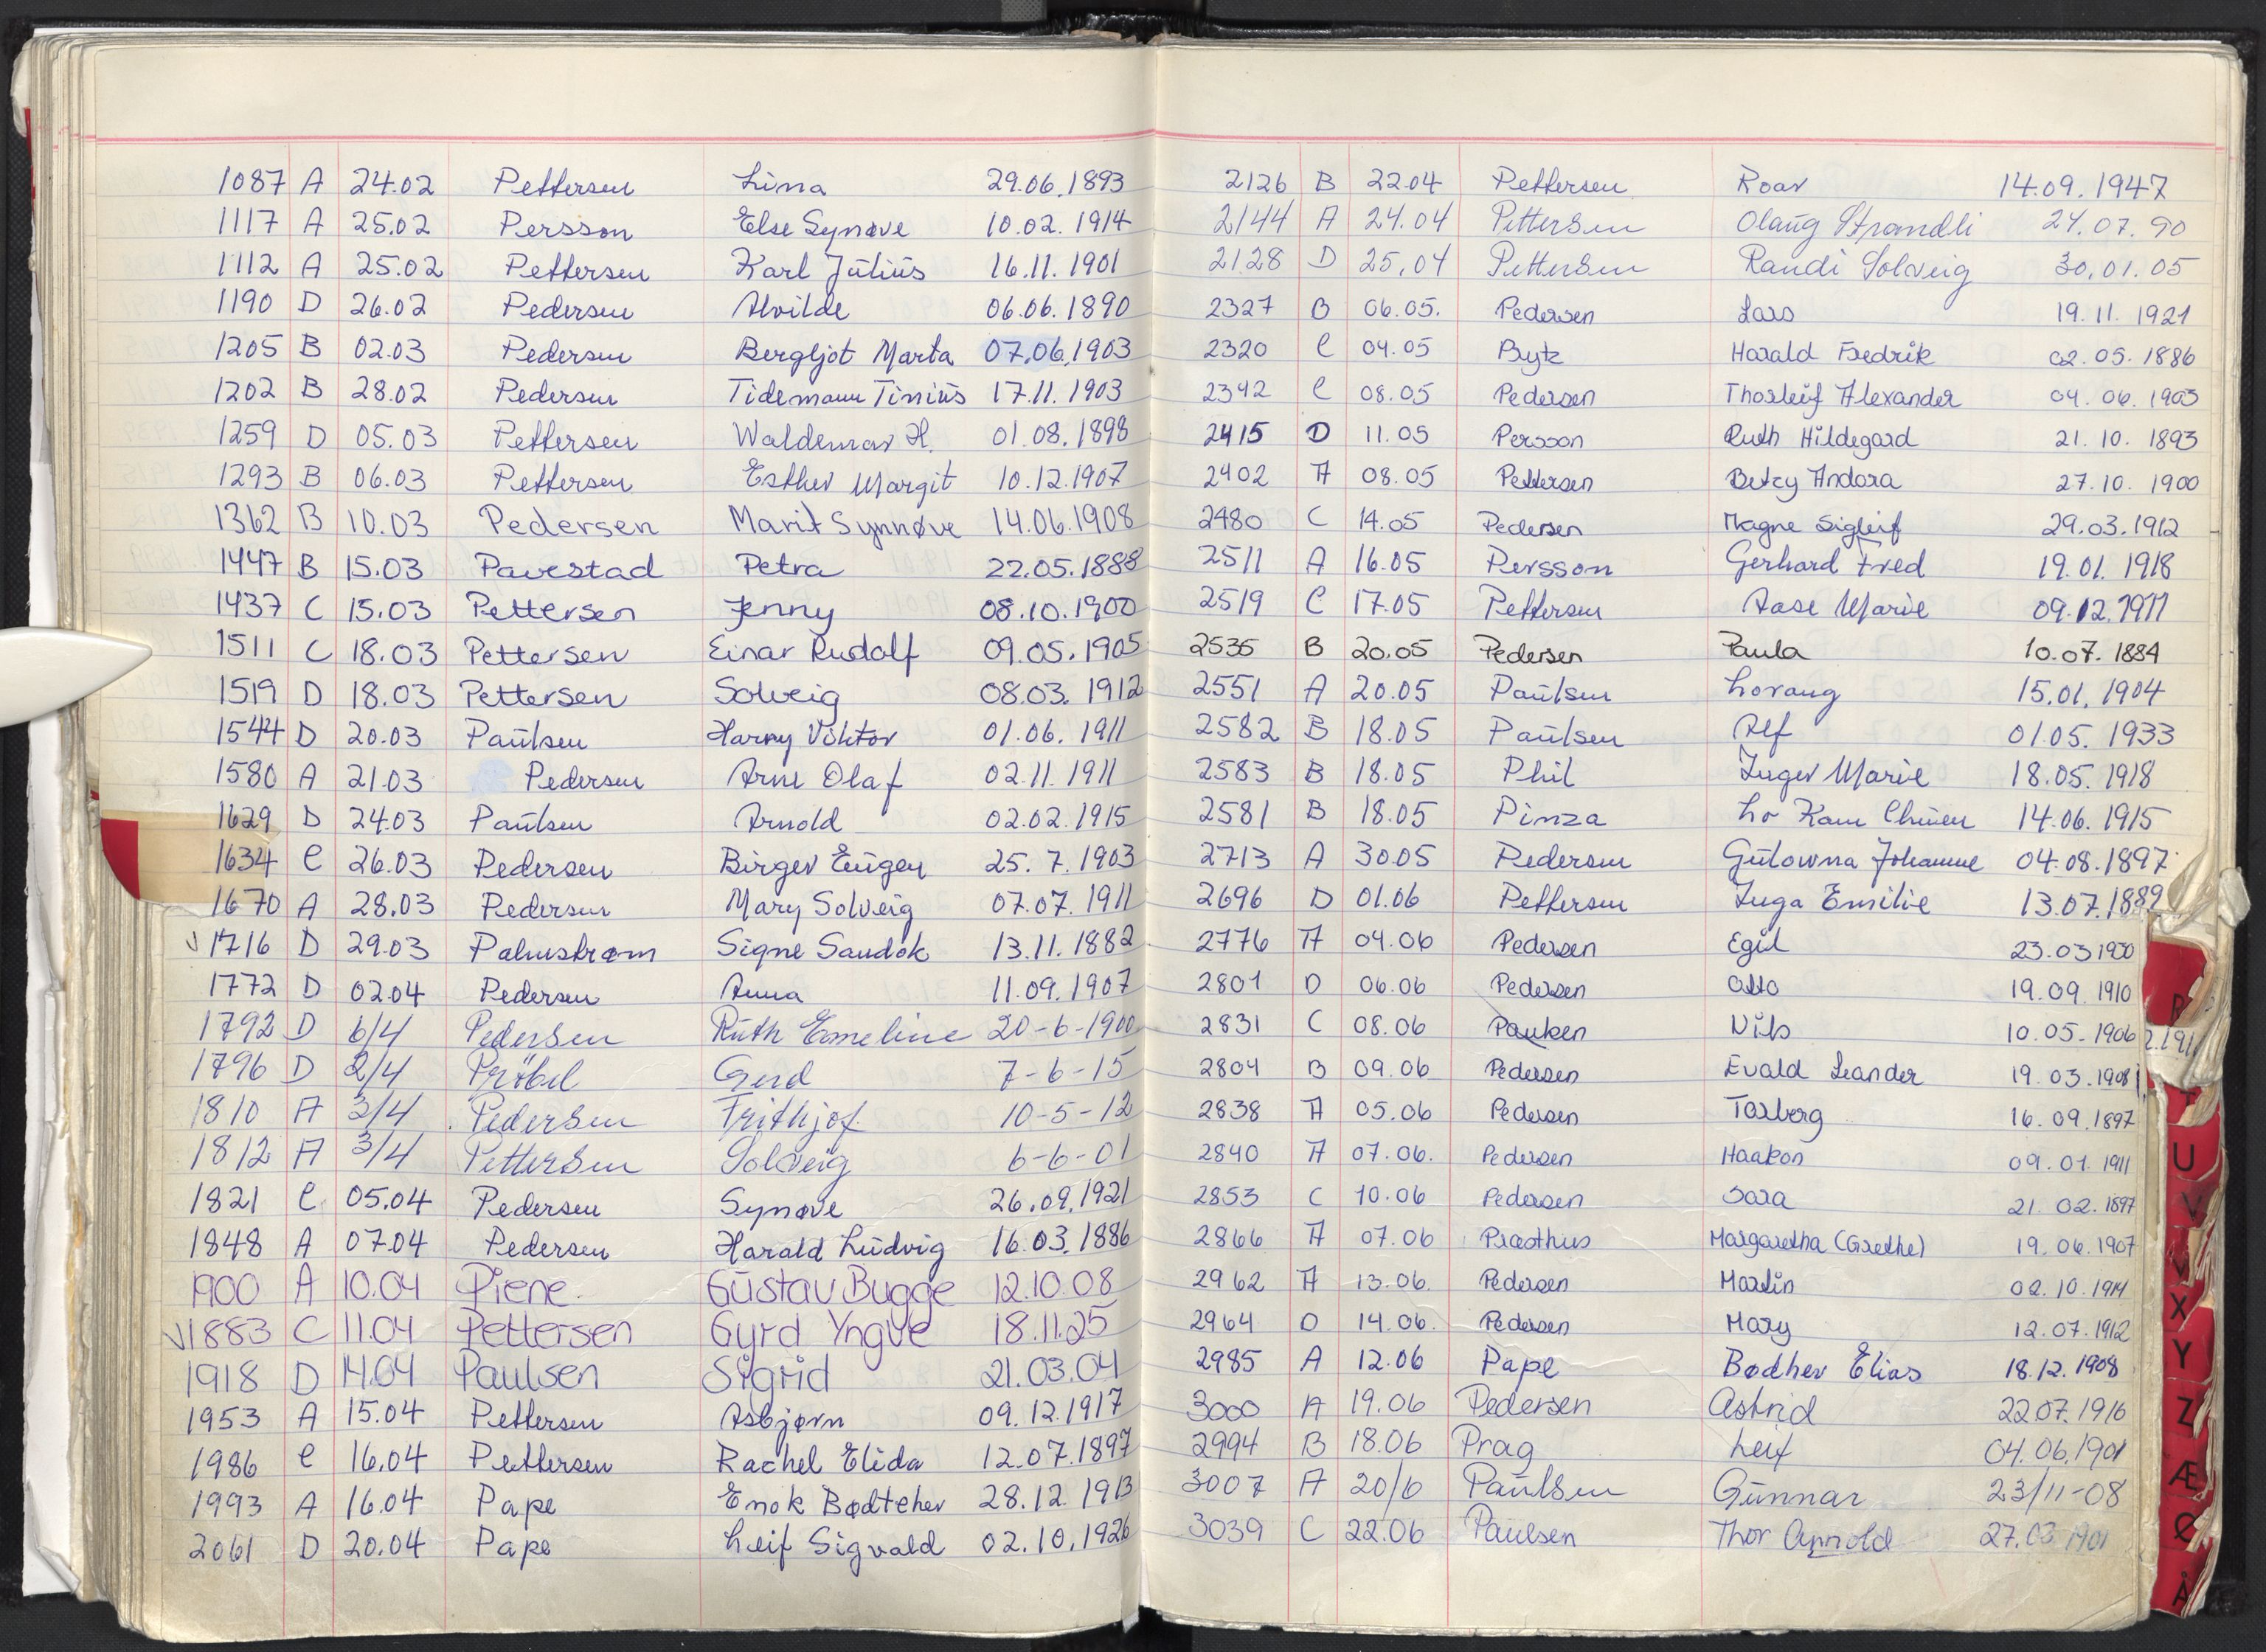 1087 A 24.02 Pettersen Lina 29.06.1893
1117 A 25.02 Persson Else Synøve 10.02.1914
1112 A 25.02 Pettersen Karl Julius 16.11.1901
1190 D 26.02 Pedersen Alvilde 06.06.1890
1205 B 02.03 Pedersen Bergljot Marta 07.06.1903
1202 B 28.02 Pedersen Tidemann Tinius 17.11.1903
1259 D 05.03 Pettersen Waldemar H. 01.08.1898
1293 B 06.03 Pettersen Esther Margit 10.12.1907
1362 B 10.03 Pedersen Marit Synnøve 14.06.1908
1447 B 15.03 Pavestad Petra 22.05.1888
1437 C 15.03 Pettersen Jenny 08.10.1900
1511 C 18.03 Pettersen Einar Rudolf 09.05.1905
1519 D 18.03 Pettersen Solveig 08.03.1912
1544 D 20.03 Paulsen Harry Viktor 01.06.1911
1580 A 21.03 Pedersen Arne Olaf 02.11.1911
1629 D 24.03 Paulsen Arnold 02.02.1915
1634 C 26.03 Pedersen Birger Eugen 25.7.1903
1670 A 28.03 Pedersen Mary Solveig 07.07.1911
1716 D 29.03 Palmstrøm Signe Sandok 13.11.1882
1772 D 02.04 Pedersen Anna 11.09.1907
1792 D 6/4 Pedersen Ruth Emeline 20-6-1900
1796 D 2/4 Pröbel Gerd 7-6-15
1810 A 3/4 Pedersen Frithjof 10-5-12
1812 A 3/4 Pettersen Solveig 6-6-01
1821 C 05.04 Pedersen Synøve 26.09.1921
1848 A 07.04 Pedersen Harald Ludvig 16.03.1886
1900 A 10.04 Piene Gustav Bugge 12.10.08
1883 C 11.04 Pettersen Gyrd Yngve 18.11.25
1918 D 14.04 Paulsen Sigrid 21.03.04
1953 A 15.04 Pettersen Asbjørn 09.12.1917
1986 C 16.04 Pettersen Rachel Elida 12.07.1897
1993 A 16.04 Pape Enok Bødtcher 28.12.1913
2061 D 20.04 Pape Leif Sigvald 02.10.1926
2126 B 22.04 Pettersen Roar 14.09.1947
2144 A 24.04 Pettersen Olaug Strandli 24.07.90
2128 D 25.04 Pettersen Randi Solveig 30.01.05
2327 B 06.05. Pedersen Lars 19.11.1921
2320 C 04.05 Bytz Harald Fredrik 02.05.1886
2392 C 08.05 Pedersen Thorleif Alexander 04.06.1903
2415 D 11.05 Persson Ruth Hildegard 21.10.1893
2402 A 08.05 Pettersen Betzy Andora 27.10.1900
2480 C 14.05 Pedersen Magne Sigleif 29.03.1912
2511 A 16.05 Persson Gerhard Fred 19.01.1918
2519 C 17.05 Pettersen Aase Marie 09.12.1911
2535 B 20.05 Pedersen Paula 10.07.1884
2551 A 20.05 Paulsen Lovang 15.01.1904
2582 B 18.05 Paulsen Alf 01.05.1933
2583 B 18.05 Phil Inger Marie 18.05.1918
2581 B 18.05 Pinza Lo Kam Chuen 14.06.1915
2713 A 30.05 Pedersen Gulowna Johanne 04.08.1897
2696 D 01.06 Pettersen Inga Emilie 13.07.1889
2776 A 04.06 Pedersen Egil 23.03.1900
2801 D 06.06 Pedersen Otto 19.09.1910
2831 C 08.06 Pauken Nils 10.05.1906
2804 B 09.06 Pedersen Evald Leander 19.03.1908
2838 A 05.06 Pedersen Torberg 16.09.1897
2840 A 07.06. Pedersen Haakon 09.01.1911
2853 C 10.06 Pedersen Sara 21.02.1897
2866 A 07.06 Præsthus Margaretha (Grethe) 19.06.1907
2962 A 13.06. Pedersen Martin 02.10.1914
2964 D 14.06. Pedersen Mary 12.07.1912
2985 A 12.06 Pape Bødher Elias 18.12.1908
3000 A 19.06 Pedersen Astrid 22.07.1916
2994 B 18.06 Prag Leif 04.06.1901
3007 A 20/6 Paulsen Gunnar 23/11-08
3039 C 22.06 Paulsen Thor Arnold 27.03.1901
R
U
V
X
Y
Z
Æ
Ø
Å